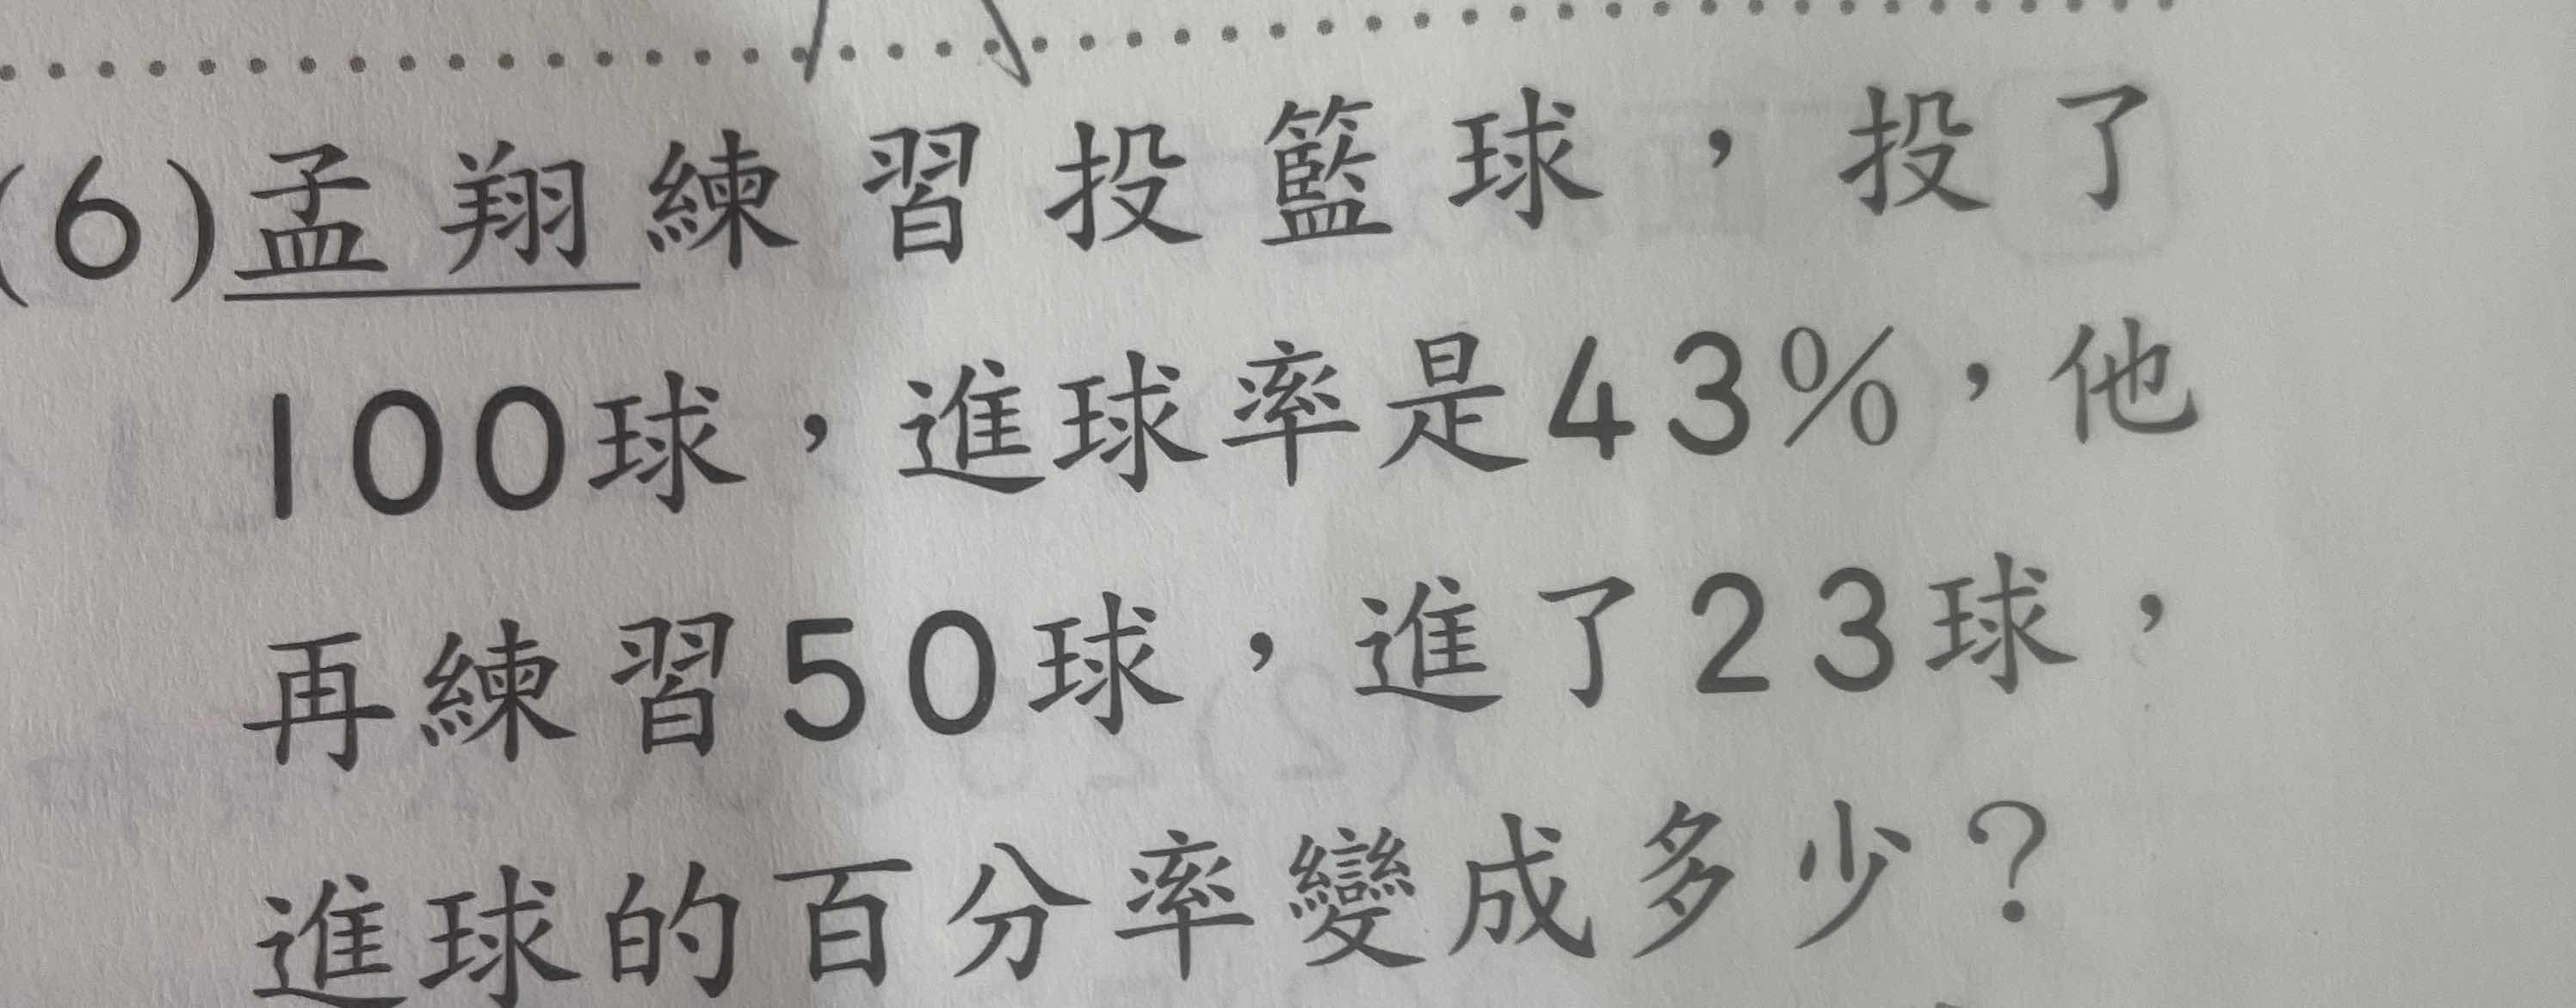 (6)孟翔練習投籃球，投了
100球，進球率是43%，他
再練習50球，進了23球，
進球的百分率變成多少？